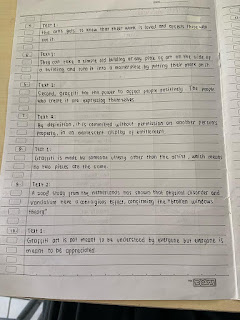 Text 1
the artist gets to know that their work is loved and accepts those who
see it
6. Text 1
They can take a simple old building or any place of art on the side of
a building and turn it into a masterpiece by putting their work on it
Text 1
Second, graffiti has the power to affect people positively. The people
who create it are expressing themselves.
Text 2
By definition, it is committed without permission on another person's
property, in an adolescent display of entitlement.
Text 1
Graffiti is made by someone usually other than the artist, which means
no two pieces are the same.
9. Text 2
A 2007 study from the Netherlands has shown that physical disorder and
vandalism have a contagious effect, confirming the "broken windows
theory"
10. Text 1
Graffiti art is not meant to be understood by everyone but everyone is
meant to be appreciated